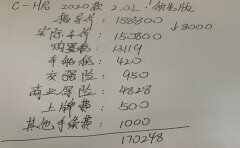 C-HR 2020款 2.0L 领先版
指导价: 158800
↓8000
实际车价: 150800
购置税: 13119
手续税: 420
交强险: 950
商业保险: 4828
上牌费: 500
其他手续费: 1000
170248